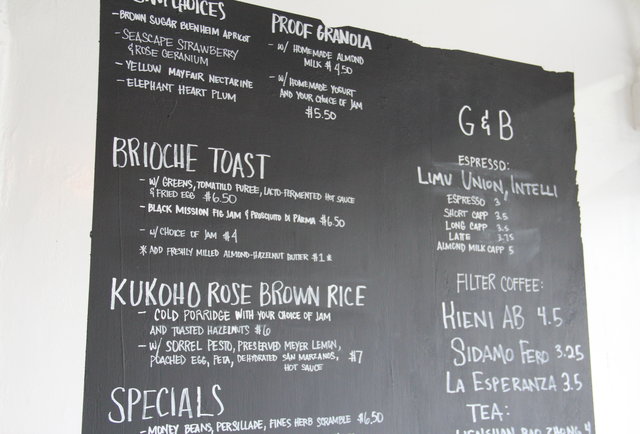 CHOICES
- BROWN SUGAR BLENHEIM APRICOT
- SEASCAPE STRAWBERRY
& ROSE GERANIUM
- YELLOW MAYFAIR NECTARINE
- ELEPHANT HEART PLUM
PROOF GRANOLA
- W/ HOMEMADE ALMOND
MILK $4.50
- W/ HOMEMADE YOGURT
AND YOUR CHOICE OF JAM
$5.50
BRIOCHE TOAST
- W/ GREENS, TOMATILLO PUREE, LACTO-FERMENTED HOT SAUCE
& FRIED EGG $6.50
- BLACK MISSION FIG JAM & PROSCIUTTO DI PARMA $6.50
- W/ CHOICE OF JAM $4
* ADD FRESHLY MILLED ALMOND-HAZELNUT BUTTER $1 *
KUKOHO ROSE BROWN RICE
- COLD PORRIDGE WITH YOUR CHOICE OF JAM
AND TOASTED HAZELNUTS $6
- W/ SORREL PESTO, PRESERVED MEYER LEMON,
POACHED EGG, FETA, DEHYDRATED SAN MARZANOS, $7
HOT SAUCE
SPECIALS
- MONEY BEANS, PERSILLADE, FINES HERB SCRAMBLE $6.50
G & B
ESPRESSO:
LIMU UNION, INTELLI
ESPRESSO 3
SHORT CAPP 3.5
LONG CAPP 3.5
LATTE 3.75
ALMOND MILK CAPP 5
FILTER COFFEE:
KIENI AB 4.5
SIDAMO FERO 3.25
LA ESPERANZA 3.5
TEA:
WENSHAN BAO ZHONG 4